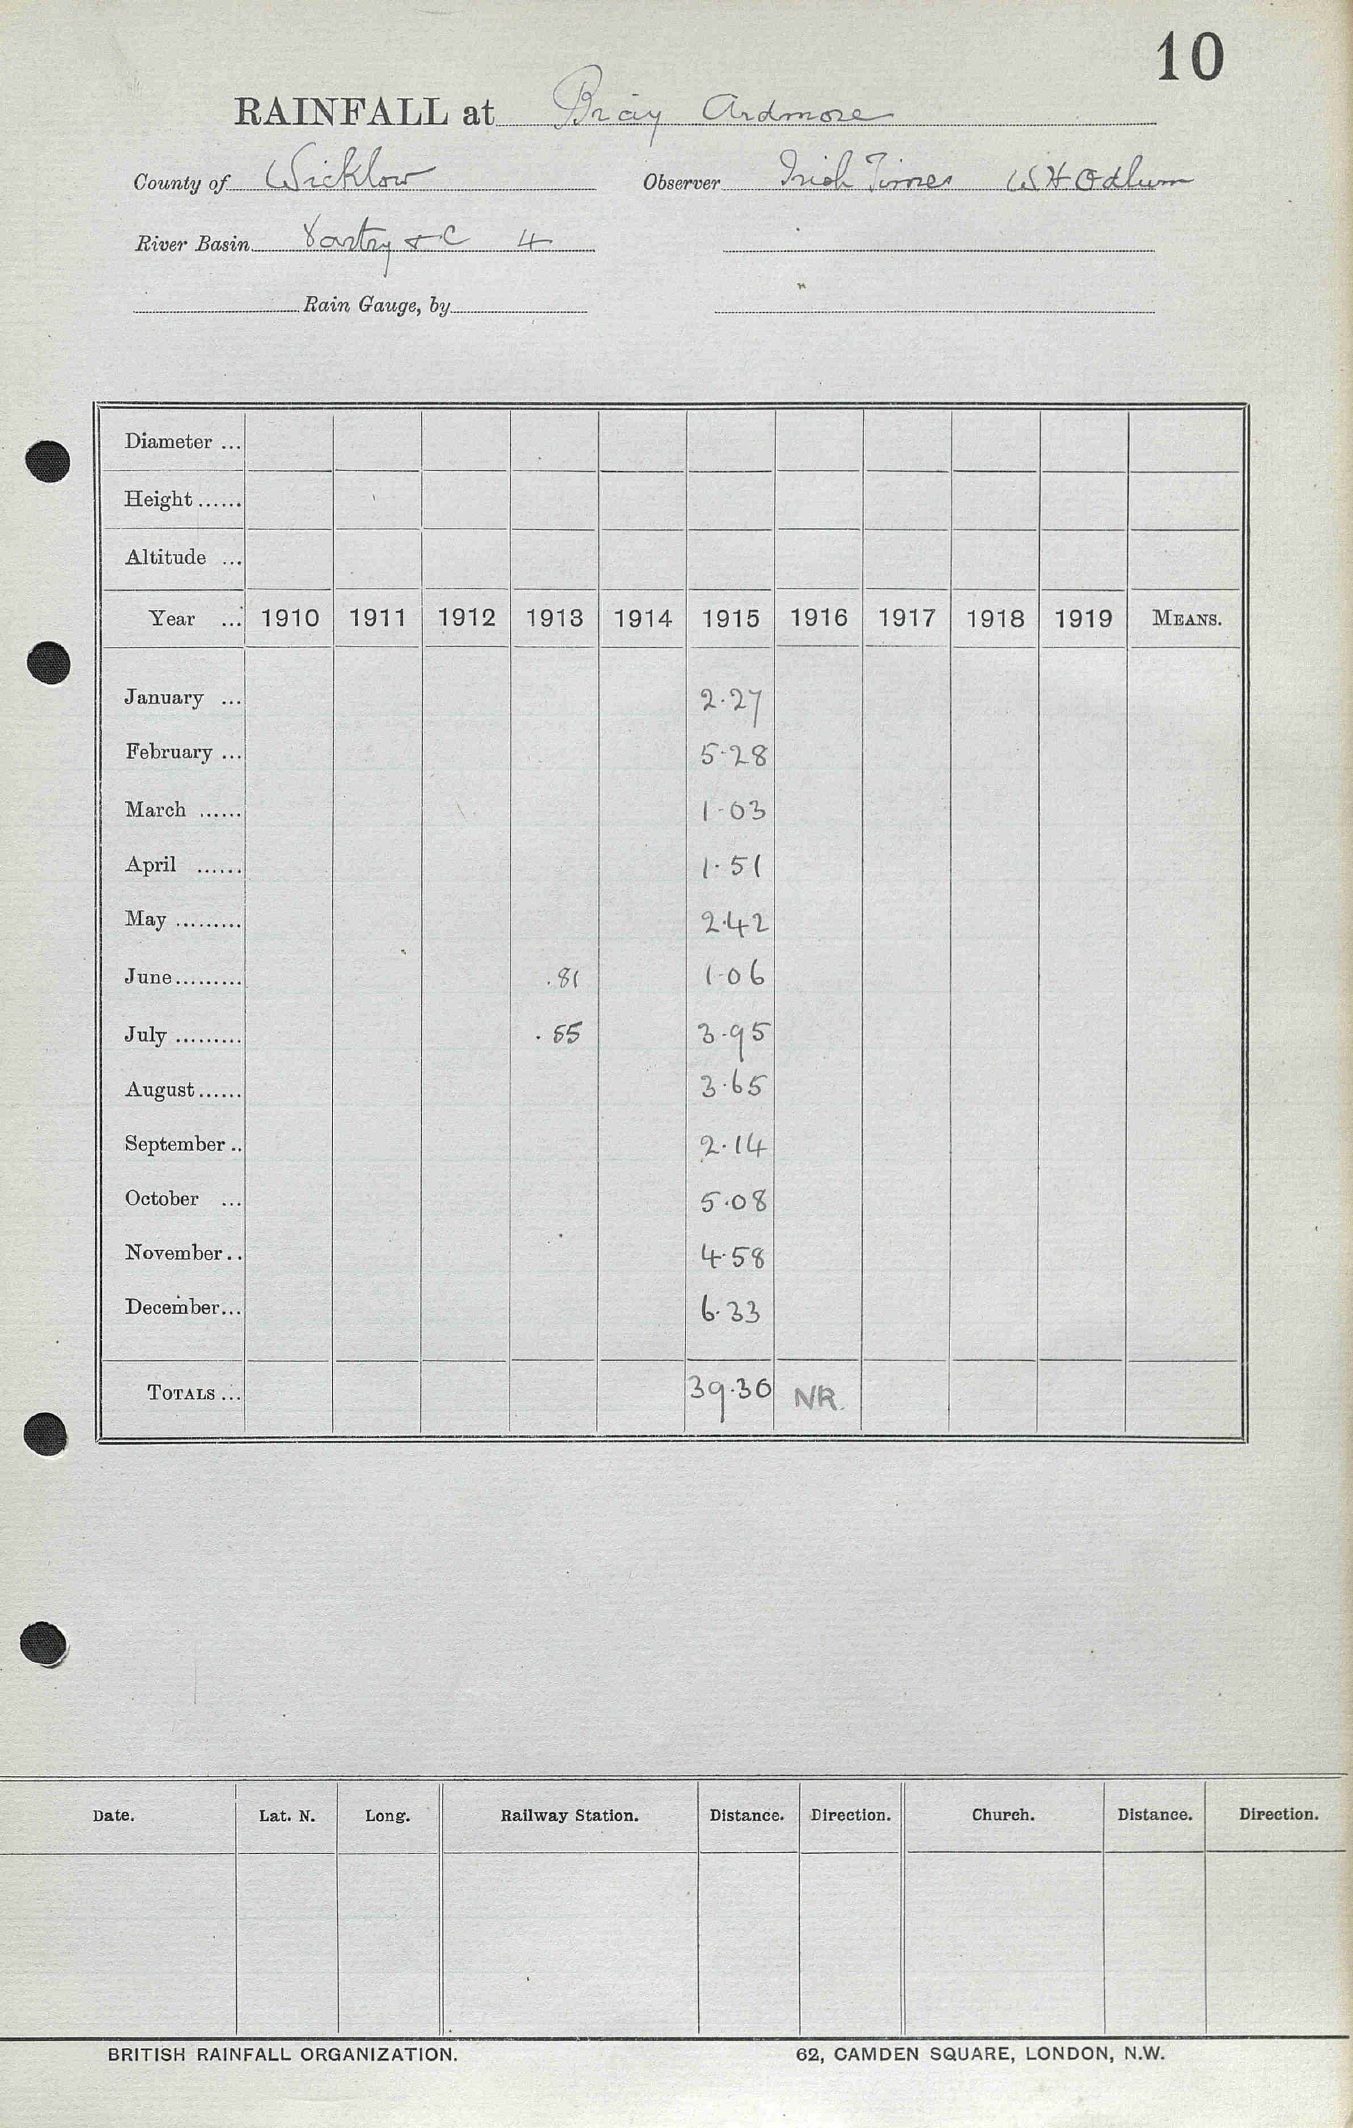 10
RAINFALL at Bray Ardmore
County of Wicklow Observer Irish Times W H Odlum
River Basin Vartry & C 4
Rain Gauge, by
Diameter ...
Height ......
Altitude ...
Year ... 1910 1911 1912 1913 1914 1915 1916 1917 1918 1919 MEANS.
January ... 2.27
February ... 5.28
March ...... 1.03
April ...... 1.51
May ......... 2.42
June ......... .81 1.06
July ......... .55 3.95
August ...... 3.65
September .. 2.14
October ... 5.08
November .. 4.58
December ... 6.33
TOTALS ... 39.30 NR.
Date. Lat. N. Long. Railway Station. Distance. Direction. Church. Distance. Direction.
BRITISH RAINFALL ORGANIZATION. 62, CAMDEN SQUARE, LONDON, N.W.